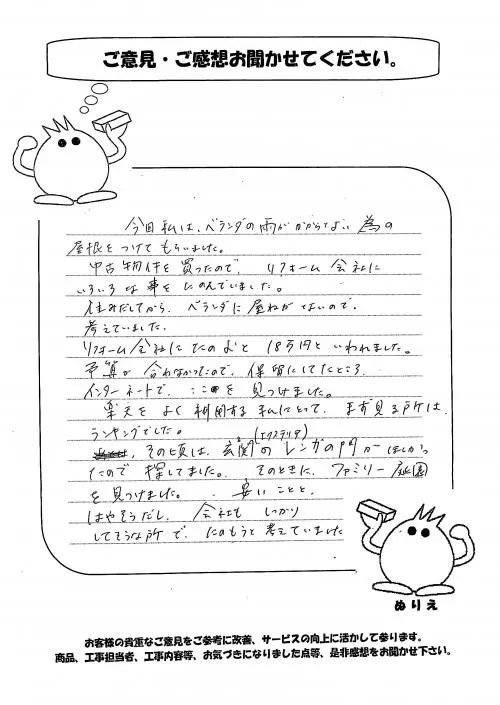 ご意見・ご感想お聞かせてください。
今回私は、ベランダの雨がかからない為の
屋根をつけてもらいました。
中古物件を買ったので、リフォーム会社に
いろいろな事をたのんでいました。
住みだしてから、ベランダに屋ねがないので、
考えていました。
リフォーム会社にたのむと18万円といわれました。
予算が合わなかったので、保留にしてたところ
インターネットで、ここを見つけました。
楽天をよく利用する私にとって、まず見る所は
ランキングでした。
(エクステリア)
その頃は、玄関のレンガの門がほしかっ
たので探してました。そのときに、ファミリー庭園
を見つけました。安いことと、
はやそうだし、会社もしっかり
してそうな所で、たのもうと考えていました
ぬりえ
お客様の貴重なご意見をご参考に改善、サービスの向上に活かして参ります。
商品、工事担当者、工事内容等、お気づきになりました点等、是非感想をお聞かせ下さい。